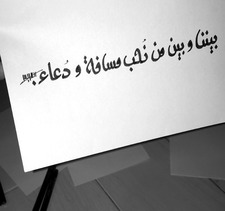 بيننا و بين من نُحب مسافة و دُعاء.